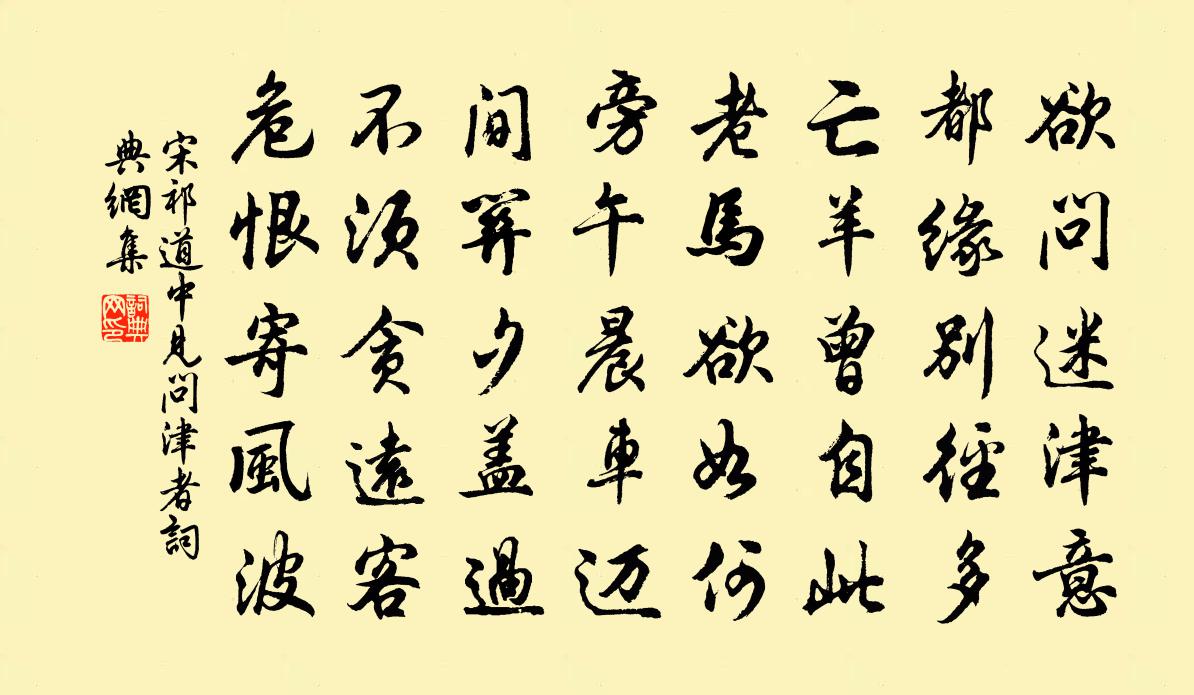 欲問迷津意
都緣別徑多
亡羊曾自此
老馬欲如何
旁午晨車迈
間關夕蓋過
不須貪遠客
危恨寄風波
宋祁道中見問津者詞
典網集
詞典网印